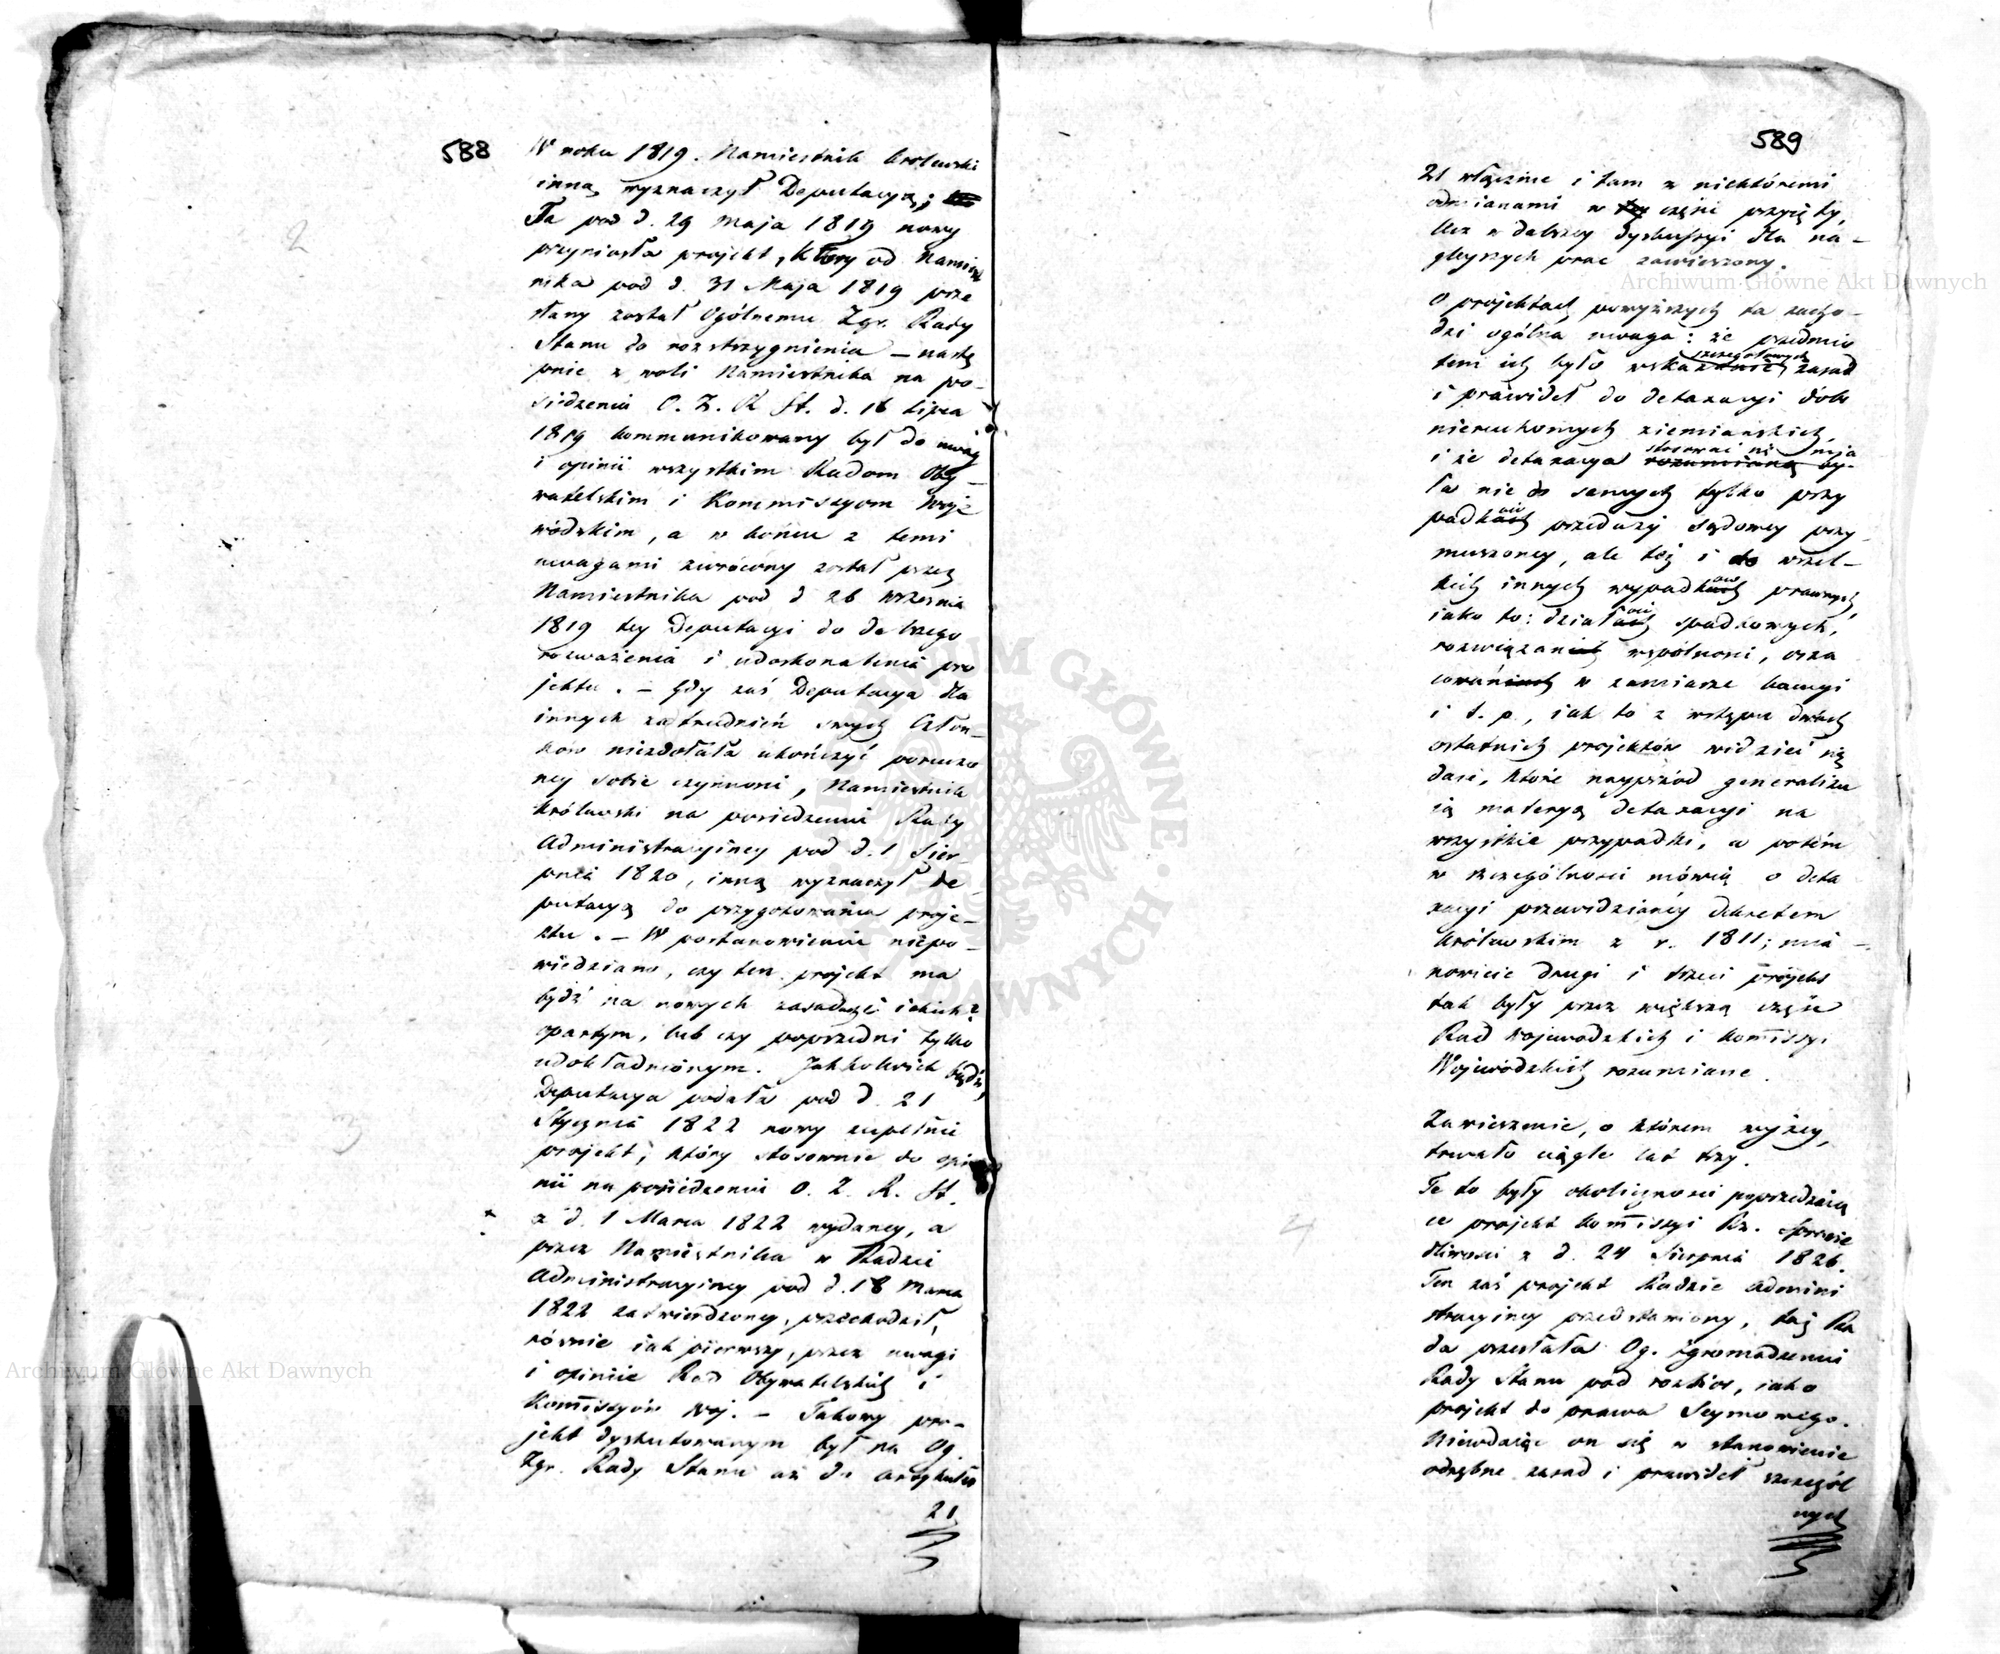 588
W roku 1819. Namiestnik królewski
inną wyznaczył Deputacyą;
Ta pod d. 29 Maja 1819 nowy
przyniosła projekt, który od Namiest
nika pod d. 31 Maja 1819 prze
słany został Ogólnemu Zgr. Rady
Stanu do rozstrzygnienia – nastę
pnie z woli Namiestnika na po-
siedzeniu O. Z. R. St. d. 16 Lipca
1819 kommunikowany był do uwag
i opinii wszystkim Radom Oby-
watelskim i Kommissyom Woje
wódzkim, a w końcu z temi
uwagami zwrócony został przez
Namiestnika pod d 26 Września
1819 tey Deputacyi do dalszego
rozważenia i udoskonalenia pro
jektu. – Gdy zaś Deputacya dla
innych zatrudnień swych Człon-
ków niezdołała ukończyć poruczo
ney sobie czynności, Namiestnik
królewski na posiedzeniu Rady
Administracyiney pod d. 1 Sier-
pnia 1820, inną wyznaczył De
putacyą do przygotowania proje-
ktu. – W postanowieniu niepo-
wiedziano, czy ten projekt ma
bydź na nowych zasadach iakich?
opartym, lub czy poprzedni tylko
udokładnionym. Jakkolwiek bądź,
Deputacya podała pod d. 21
Stycznia 1822 nowy zupełnie
projekt, który stosownie do opi
nii na posiedzeniu O. Z. R. St.
z d. 1 Marca 1822 wydaney, a
przez Namiestnika w Radzie
Administracyiney pod d. 18 Marca
1822 zatwierdzoney, przechodził,
równie iak pierwszy, przez uwagi
i opiniie Rad Obywatelskich i
Komissyów Woj. – Takowy pro-
jekt dyskutowanym był na Og.
Zgr. Rady Stanu aż do artykułu
21
589
21 włącznie i tam z niektóremi
odmianami w części przyięty,
lecz w dalszey dyskussyi dla na-
gleyszych prac zawieszony.
O projektach powyższych ta zacho-
dzi ogólna uwaga: że przedmio
szczegółowych
tem ich było wskazanie zasad
i prawideł do detaxacyi dóbr
nieruchomych ziemiańskich,
stosować się mia
i że detaxacya rozumianą by-
ła nie do samych tylko przy
padków przedaży sądowey przy-
muszoney, ale też i do wszel-
kich innych wypadków prawnych,
iako to: działów spadkowych,
rozwiązań wspólności, osza
cowań w zamiarze kaucyi
i t. p., iak to z wstępu dwóch
ostatnich projektów widzieć się
daie, które nayprzód generalizu
ią materyą detaxacyi na
wszystkie przypadki, a potém
w szczególności mówią o deta
xacyi przewidzianéy dekretem
królewskim z r. 1811; mia-
nowicie drugi i trzeci projekt
tak były przez większą część
Rad Wojewódzkich i Komissyi
Wojewódzkich rozumiane.
Zawieszenie, o którem wyżey,
trwało ciągle lat trzy.
Te to były okoliczności poprzedzaią
ce projekt Komissyi Rz. Sprawie
dliwości z d. 24 Sierpnia 1826.
Ten zaś projekt Radzie Admini
stracyiney przedstawiony, taż Ra
da przesłała Og. Zgromadzeniu
Rady Stanu pod rozbiór, iako
projekt do prawa Seymowego.
Niewdaiąc on się w stanowienie
odrębne zasad i prawideł szczegól
nych
Archiwum Główne Akt Dawnych
Archiwum Główne Akt Dawnych